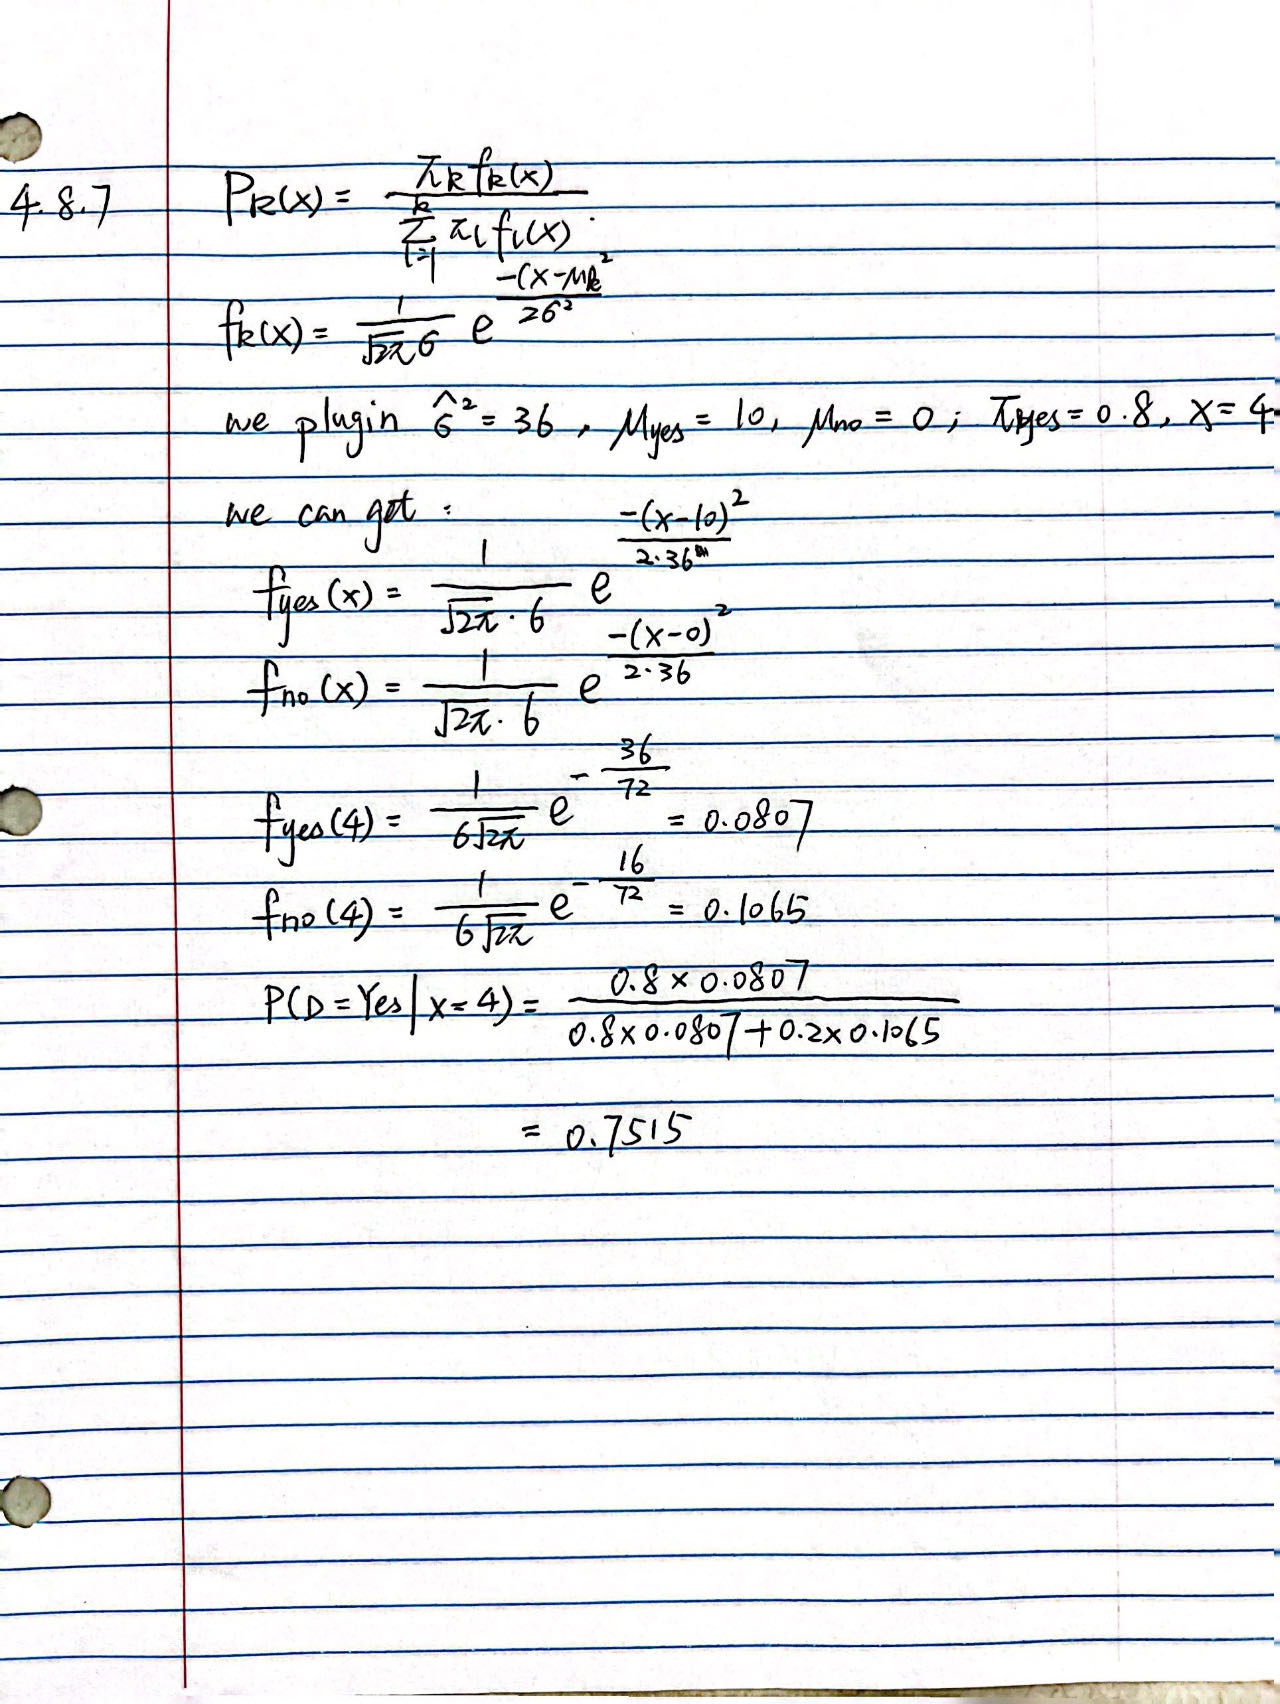 4.8.7 Pk(x) = πk fk(x) / Σ_{l=1}^{k} πl fl(x)
fk(x) = 1/(√2π σ) e^{-(x-μk)²/2σ²}
we plugin σ̂² = 36, μyes = 10, μno = 0; πyes = 0.8, x = 4
we can get :
fyes(x) = 1/(√2π · 6) e^{-(x-10)²/2·36}
fno(x) = 1/(√2π · 6) e^{-(x-0)²/2·36}
fyes(4) = 1/(6√2π) e^{-36/72} = 0.0807
fno(4) = 1/(6√2π) e^{-16/72} = 0.1065
P(D = Yes | x = 4) = 0.8 × 0.0807 / 0.8 × 0.0807 + 0.2 × 0.1065
= 0.7515